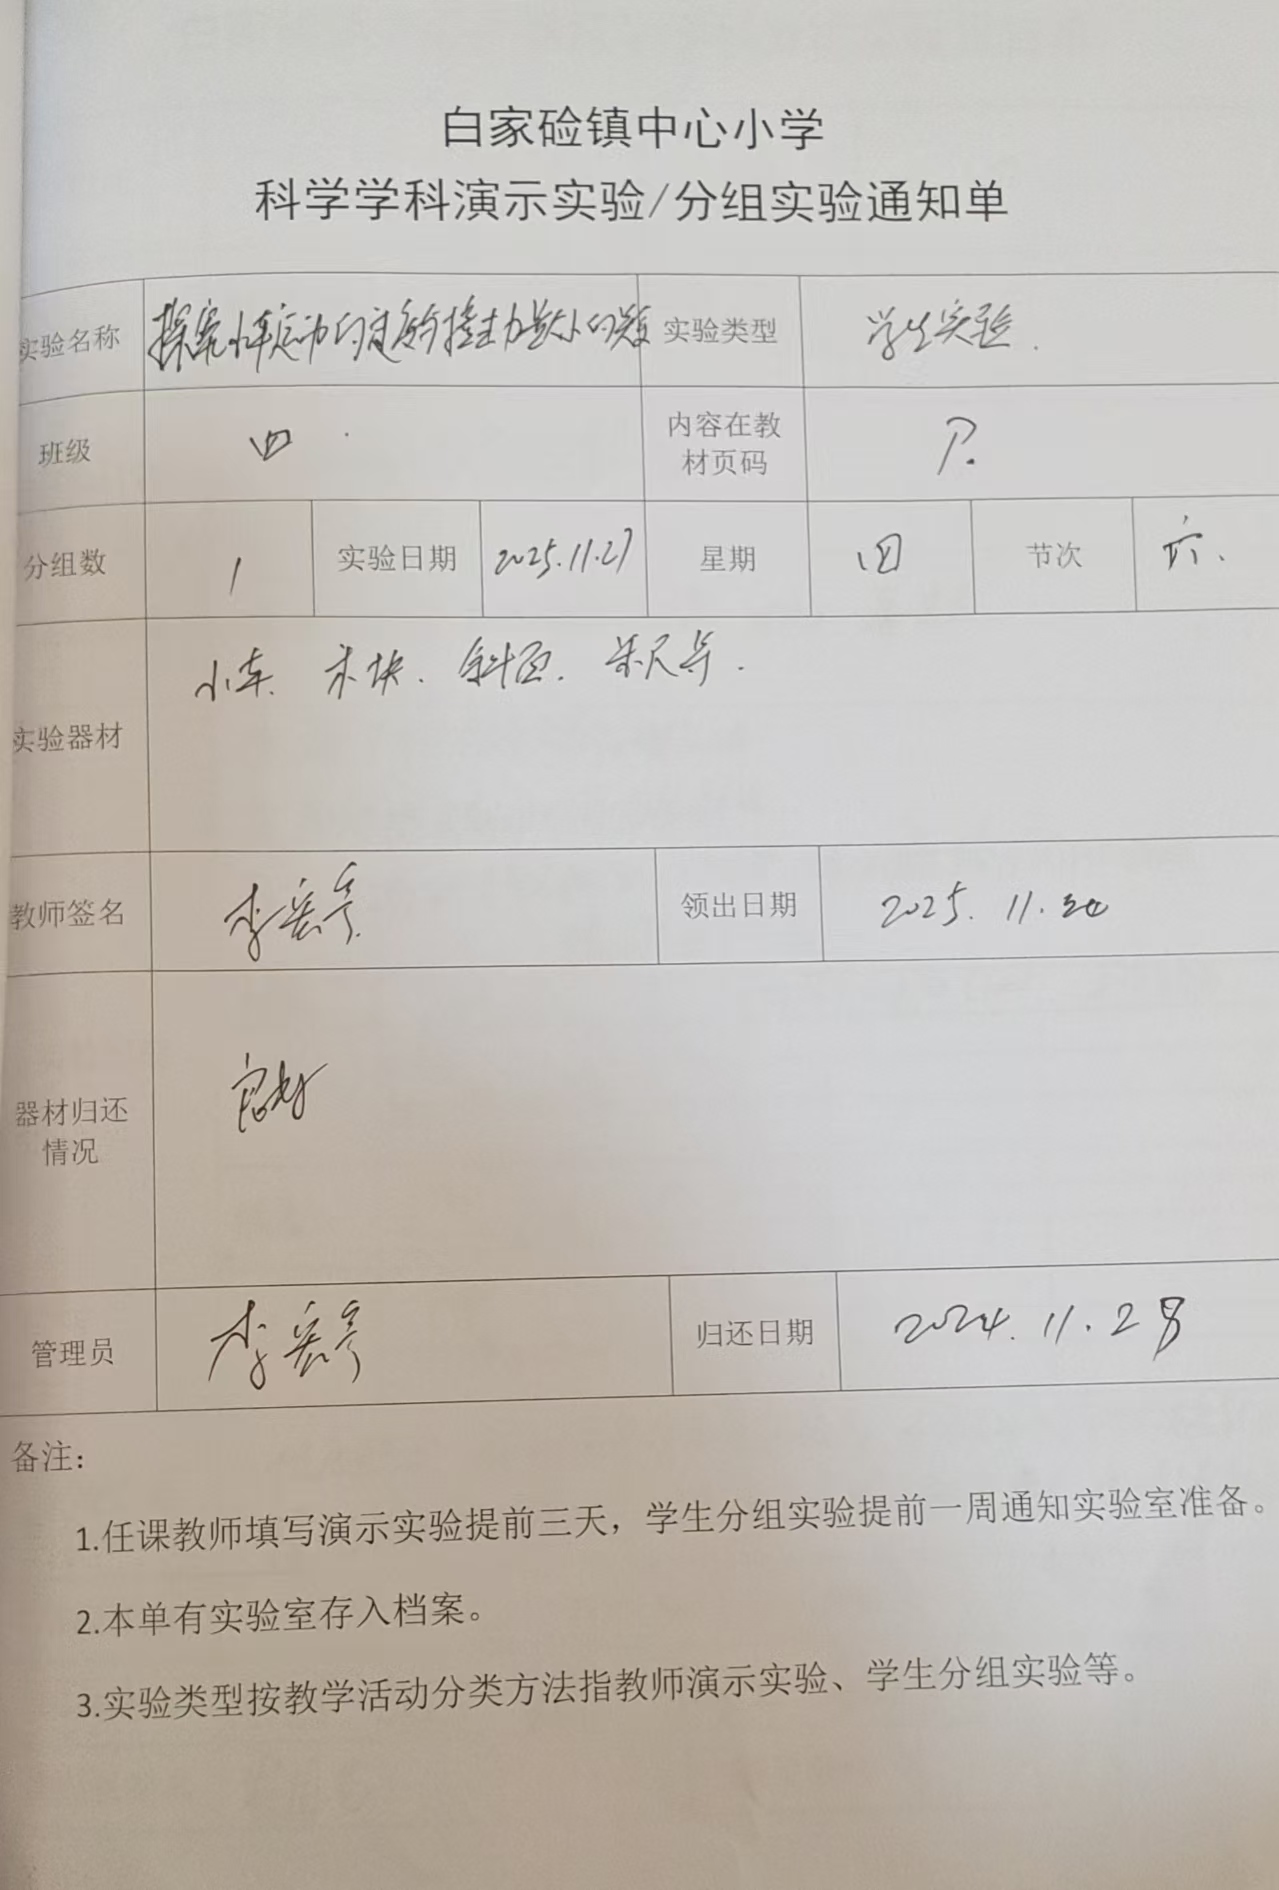 白家硷镇中心小学
科学学科演示实验/分组实验通知单
实验名称 探究小车运动的速度与撞击力大小的关系 实验类型 学生实验.
班级 四 内容在教材页码 P.
分组数 1 实验日期 2025.11.27 星期 四 节次 六.
实验器材 小车. 木块. 斜面. 米尺等.
教师签名 李 领出日期 2025.11.20
器材归还情况 完好
管理员 李 归还日期 2024.11.28
备注:
1.任课教师填写演示实验提前三天，学生分组实验提前一周通知实验室准备。
2.本单有实验室存入档案。
3.实验类型按教学活动分类方法指教师演示实验、学生分组实验等。